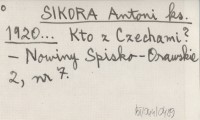 SIKORA Antoni ks.
1920... Kto z Czechami?
– Nowiny Spisko-Orawskie
2, nr 7.